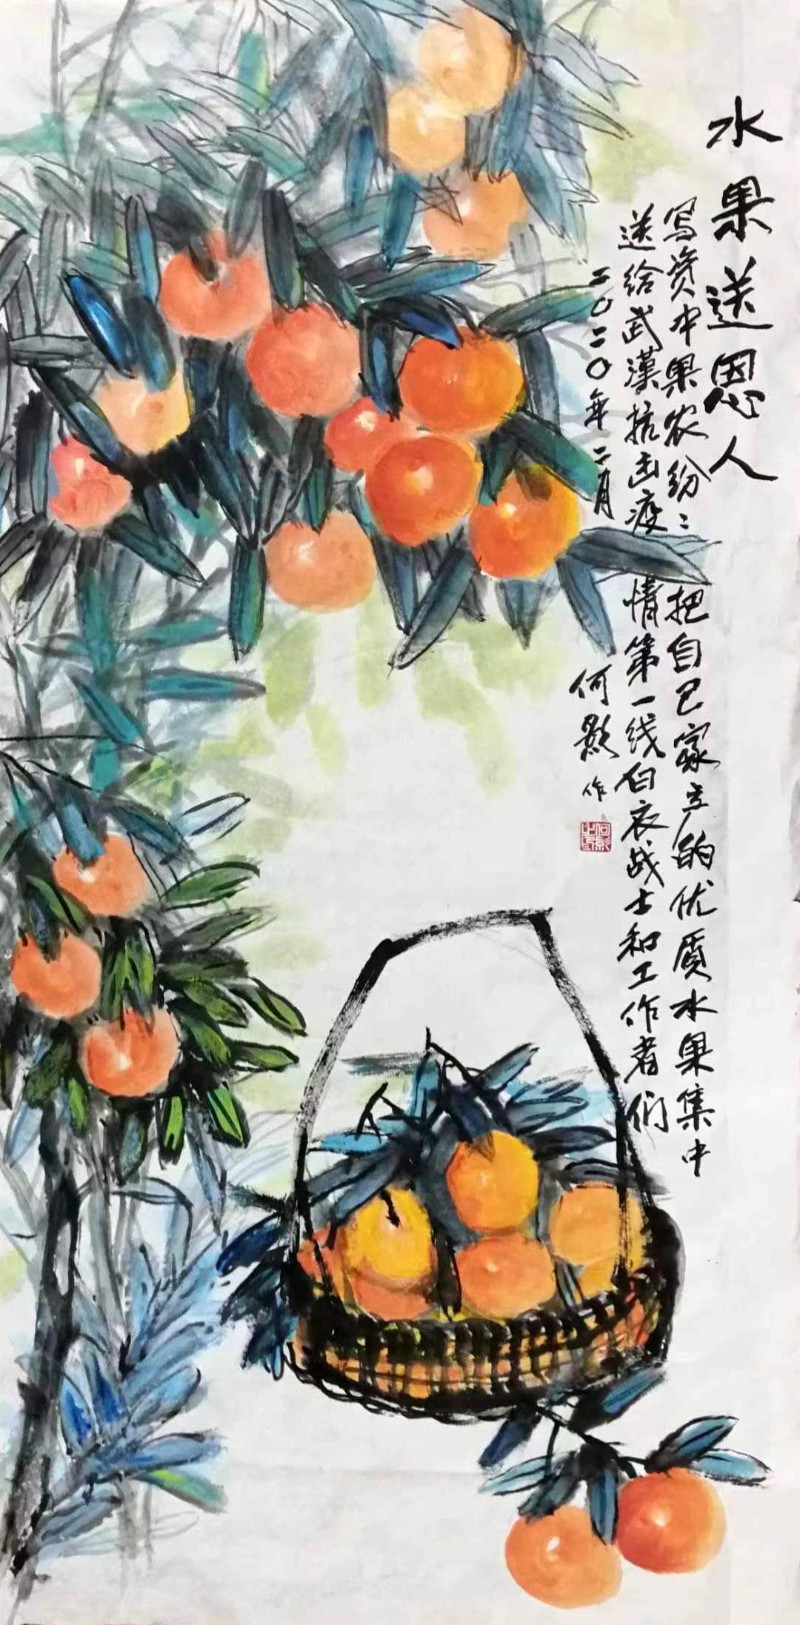 水果送恩人
写资中果农纷〻把自己家产的优质水果集中
送给武漢抗击疫情第一线白衣战士和工作者们
二〇二〇年二月
何影作